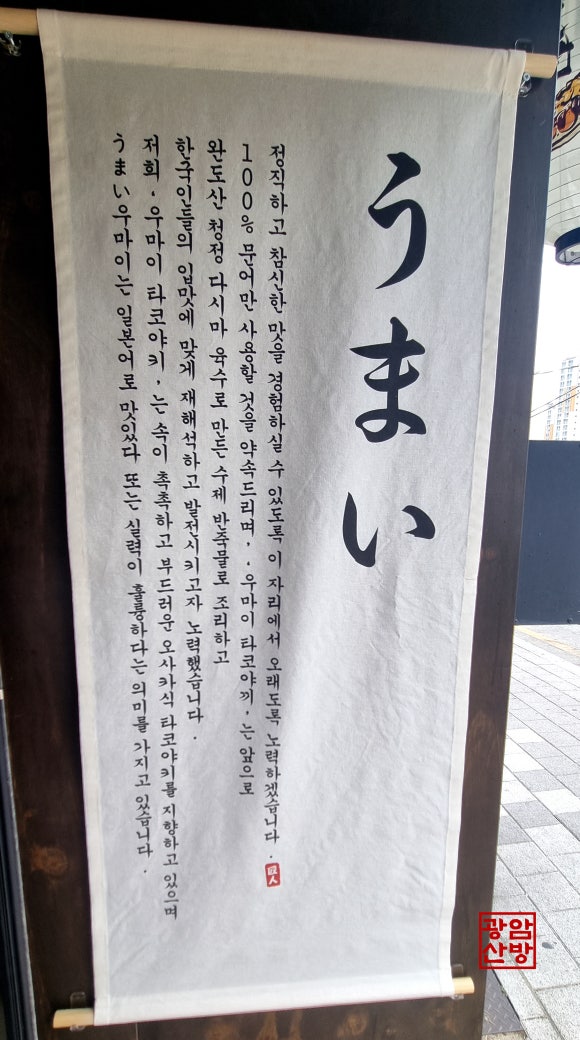 うまい
うまい우마이는 일본어로 맛있다 또는 실력이 훌륭하다는 의미를 가지고 있습니다.
저희 '우마이 타코야키'는 속이 촉촉하고 부드러운 오사카식 타코야키를 지향하고 있으며
한국인들의 입맛에 맞게 재해석하고 발전시키고자 노력했습니다.
완도산 청정 다시마 육수로 만든 수제 반죽물로 조리하고
100% 문어만 사용할 것을 약속드리며, '우마이 타코야끼'는 앞으로
정직하고 참신한 맛을 경험하실 수 있도록 이 자리에서 오래도록 노력하겠습니다.
匠人
광암
산방